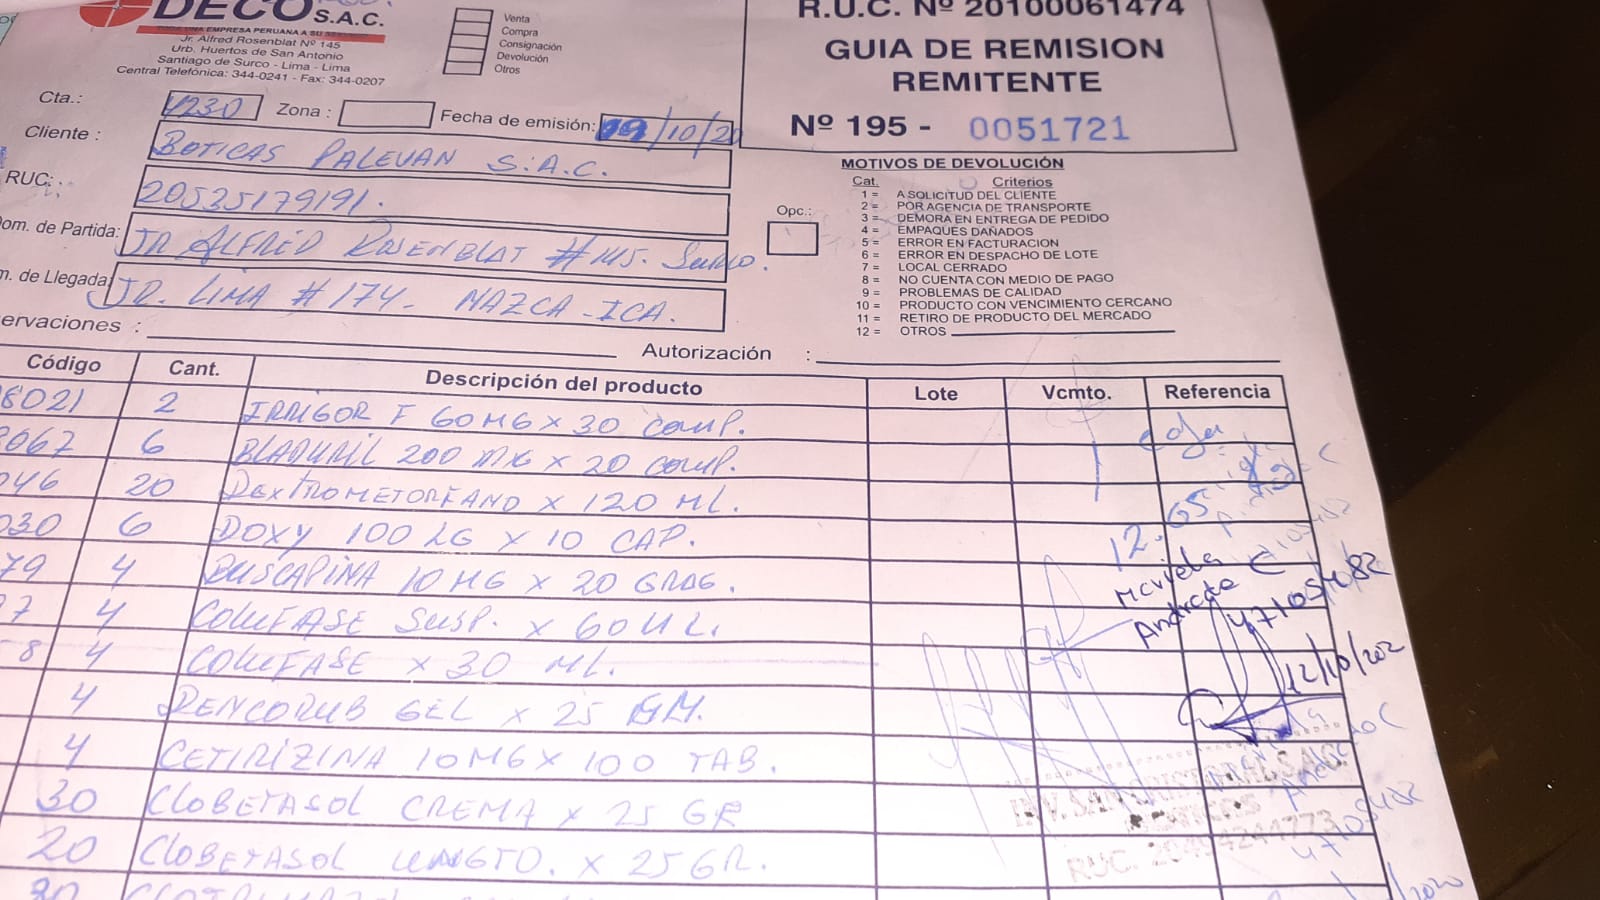 DECO S.A.C.
UNA EMPRESA PERUANA A SU SERVICIO
Jr. Alfred Rosenblat Nº 145
Urb. Huertos de San Antonio
Santiago de Surco - Lima - Lima
Central Telefónica: 344-0241 - Fax: 344-0207
Venta
Compra
Consignación
Devolución
Otros
R.U.C. Nº 20100061474
GUIA DE REMISION
REMITENTE
Nº 195 - 0051721
Cta.: 4230 Zona : Fecha de emisión: 09/10/20
Cliente : BOTICAS PALEVAN S.A.C.
RUC: 20535179191.
om. de Partida: JR ALFRED ROSENBLAT #145. SURCO.
m. de Llegada: JR. LIMA #174- NAZCA - ICA.
ervaciones :
Autorización :
MOTIVOS DE DEVOLUCIÓN
Cat. Criterios
1 = A SOLICITUD DEL CLIENTE
2 = POR AGENCIA DE TRANSPORTE
3 = DEMORA EN ENTREGA DE PEDIDO
4 = EMPAQUES DAÑADOS
5 = ERROR EN FACTURACION
6 = ERROR EN DESPACHO DE LOTE
7 = LOCAL CERRADO
8 = NO CUENTA CON MEDIO DE PAGO
9 = PROBLEMAS DE CALIDAD
10 = PRODUCTO CON VENCIMIENTO CERCANO
11 = RETIRO DE PRODUCTO DEL MERCADO
12 = OTROS
Opc.:
Código Cant. Descripción del producto Lote Vcmto. Referencia
8021 2 IRRIGOR F 60MG X 30 COMP.
8067 6 BLADURIL 200 MG X 20 COMP.
046 20 DEXTROMETORFANO X 120 ML.
030 6 DOXY 100 LG X 10 CAP.
79 4 BUSCAPINA 10MG X 20 GRAG.
97 4 COLUFASE SUSP. X 60ML.
58 4 COLUFASE X 30 ML.
4 DENCORUB GEL X 25 GM.
4 CETIRIZINA 10MG X 100 TAB.
30 CLOBETASOL CREMA X 25 GR
20 CLOBETASOL UNGTO. X 25GR.
12.65
Mariela
Andrade C
47105482
12/10/202
INV. SAN CRISTOBAL S.A.C.
BOTICAS
RUC. 20494244773
47105482